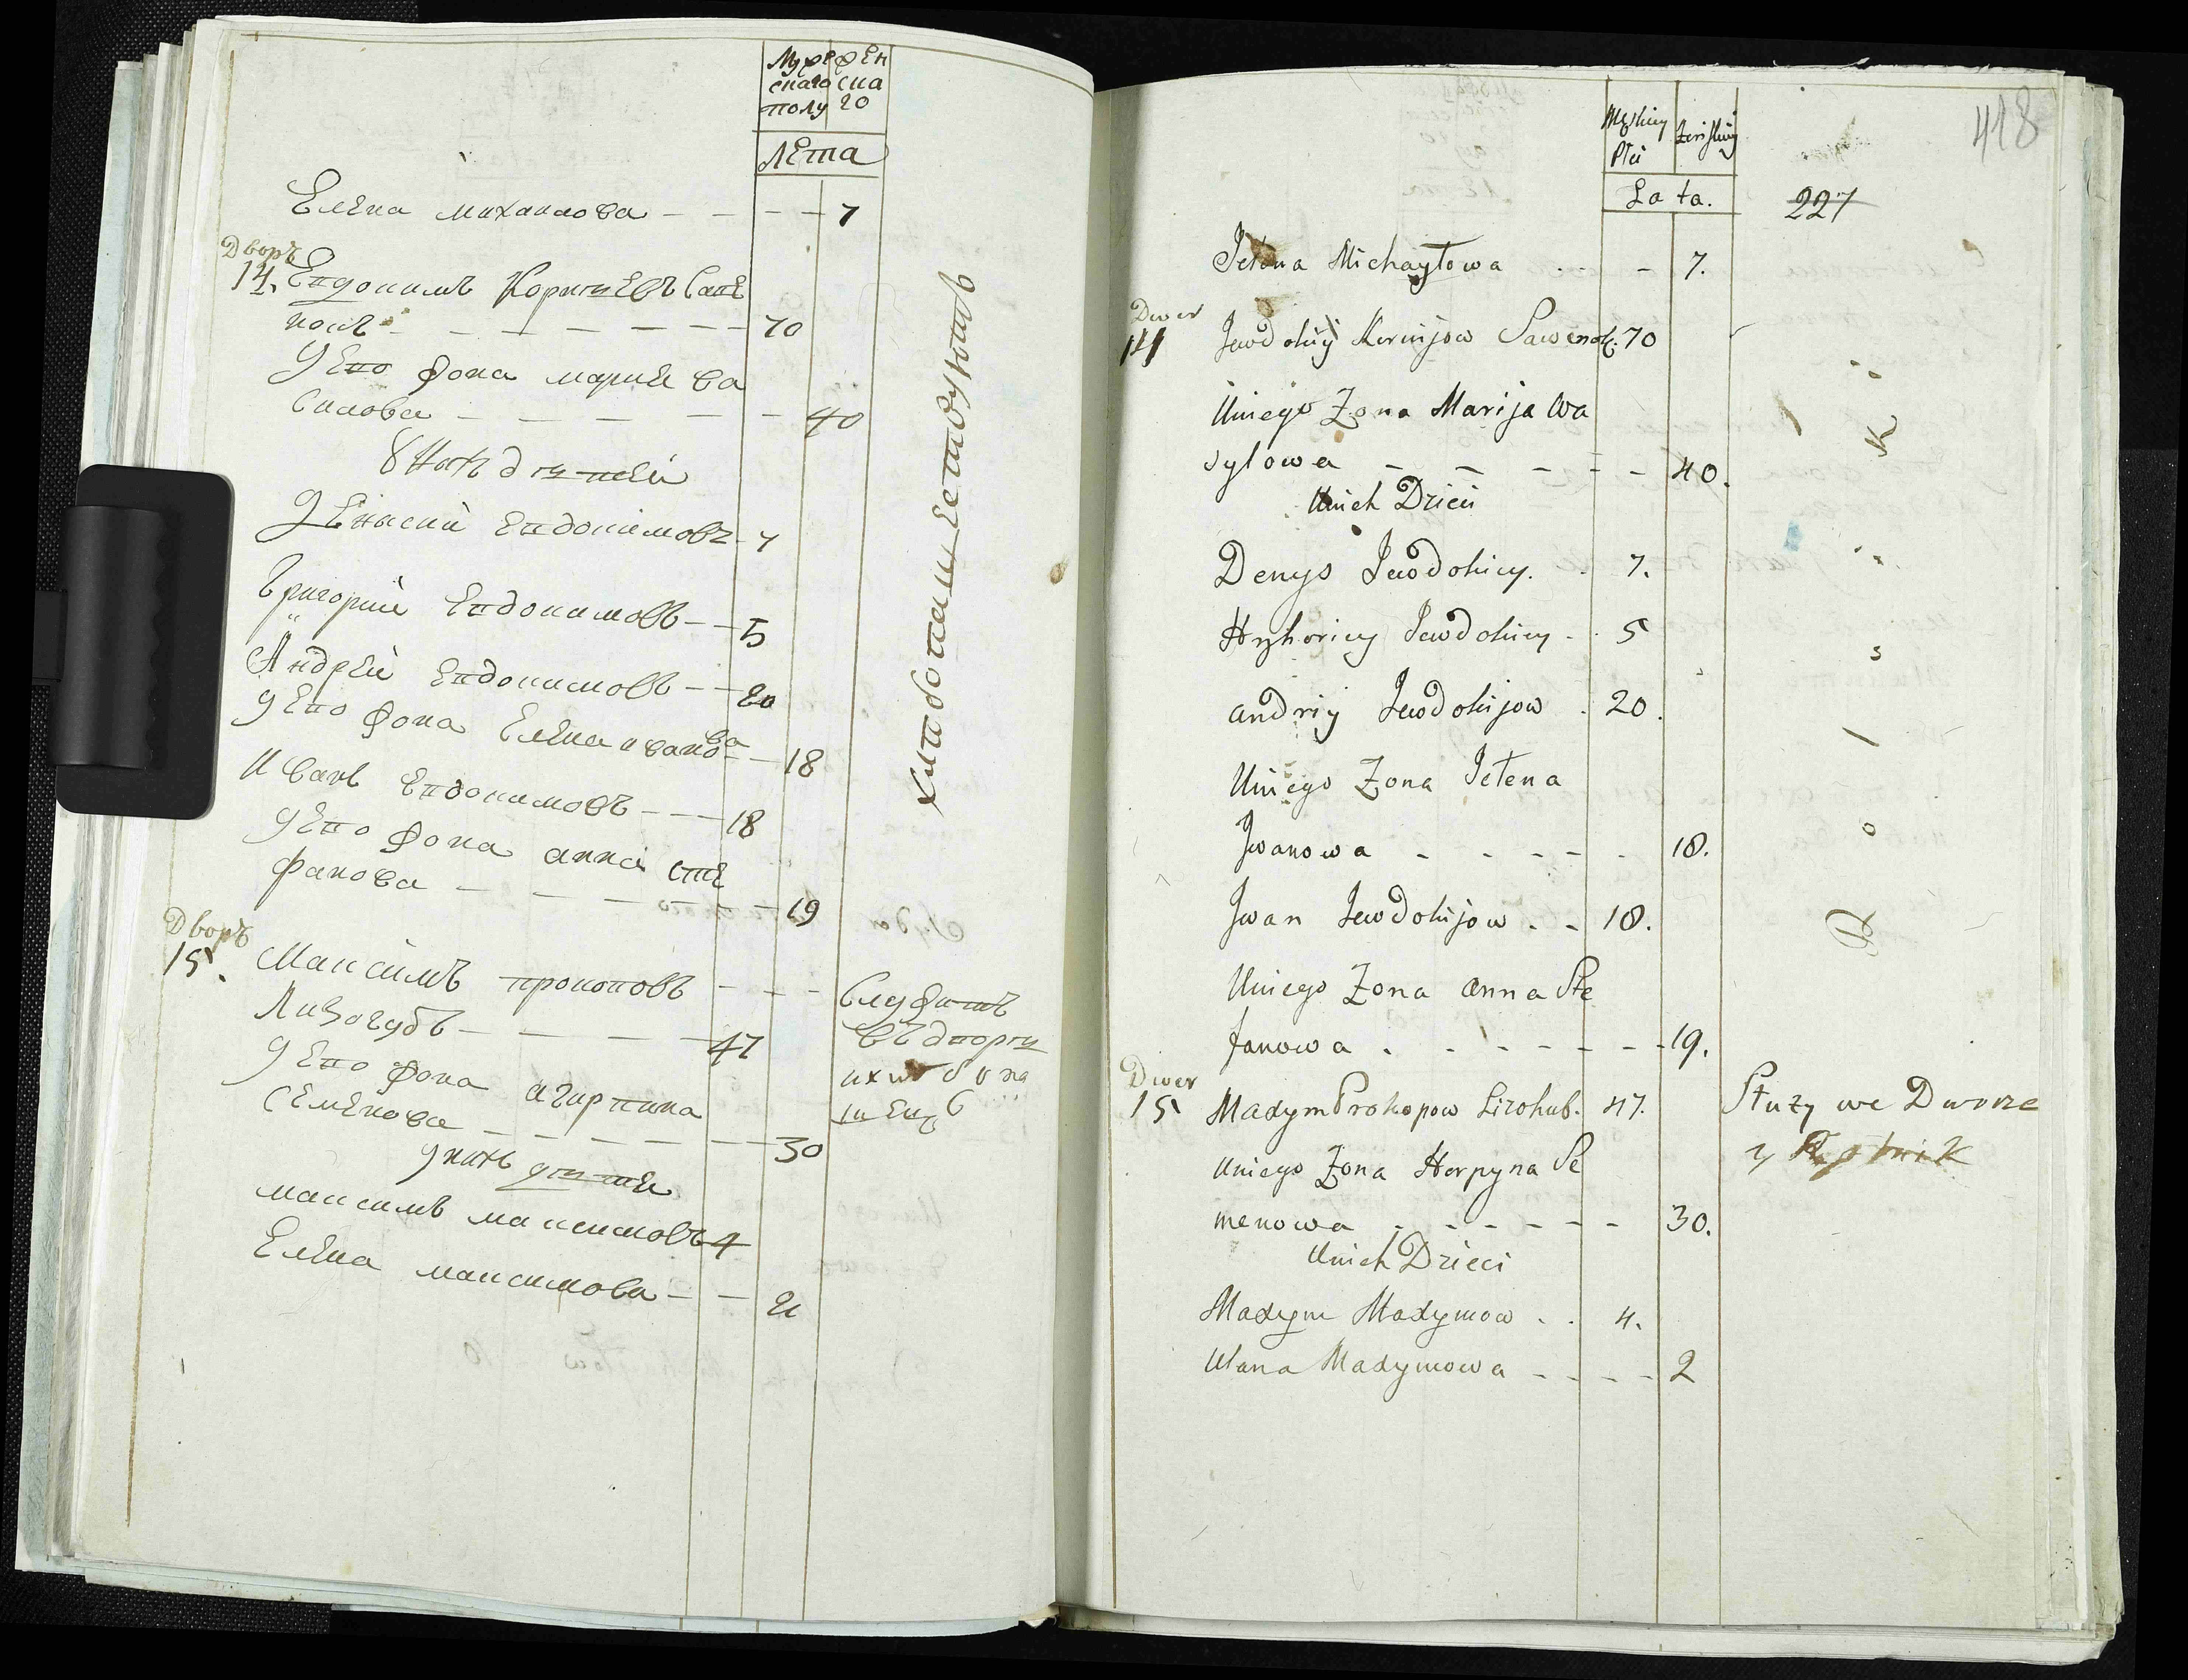 Муже Жен
скаго ска
полу го
Лета
Елена михаилова - - - - 7
Дворъ
14. Евдокимъ Корнѣевъ Саве
нокъ - - - - - - 70
У Его жона мария ва
силова - - - - - 40
У нихъ дѣтей
Денисий Евдокимовъ - 7
Григорий Евдокимовъ - - 5
Андрей Евдокимовъ - - 20
У Его жона Елена ивано
ва - - 18
Иванъ Евдокимовъ - - - 18
У Его жона анна сте
фанова - - - - - 19
хлебопашествуютъ
Дворъ
15. Максимъ прокоповъ - - -
Лизогубъ - - - - 47
Служитъ
въ дворѣ
У Его жона агарпина
Семенова - - - - - 30
У нихъ дѣтей
максимъ максимовъ 4
Елена максимова - - 2
418
Męskiey Żeńskiey
Płci
Lata.
227
Jełena Michayłowa - 7.
Dwor
14 Jewdokiy Kornijow Sawenok. 70
Uniego Zona Marija Wa
sylowa - - - - - 40.
Unich Dzieci
Denys Jewdokiey. 7.
Hryhoriey Jewdokiey - 5
andriy Jewdokijow . 20.
Uniego Zona Jełena
Jwanowa - - - - - 18.
Jwan Jewdokijow . - 18.
Uniego Zona anna Ste
fanowa . - - - - - - 19.
R o l s k i
Dwor
15 Maxym Prokopow Lizohub. 47.
Służy we Dworze
y Rolnik
Uniego Zona Horpyna Se
menowa - - - - - - 30.
Unich Dzieci
Maxym Maxymow . . 4.
Ulana Maxymowa - - - - 2